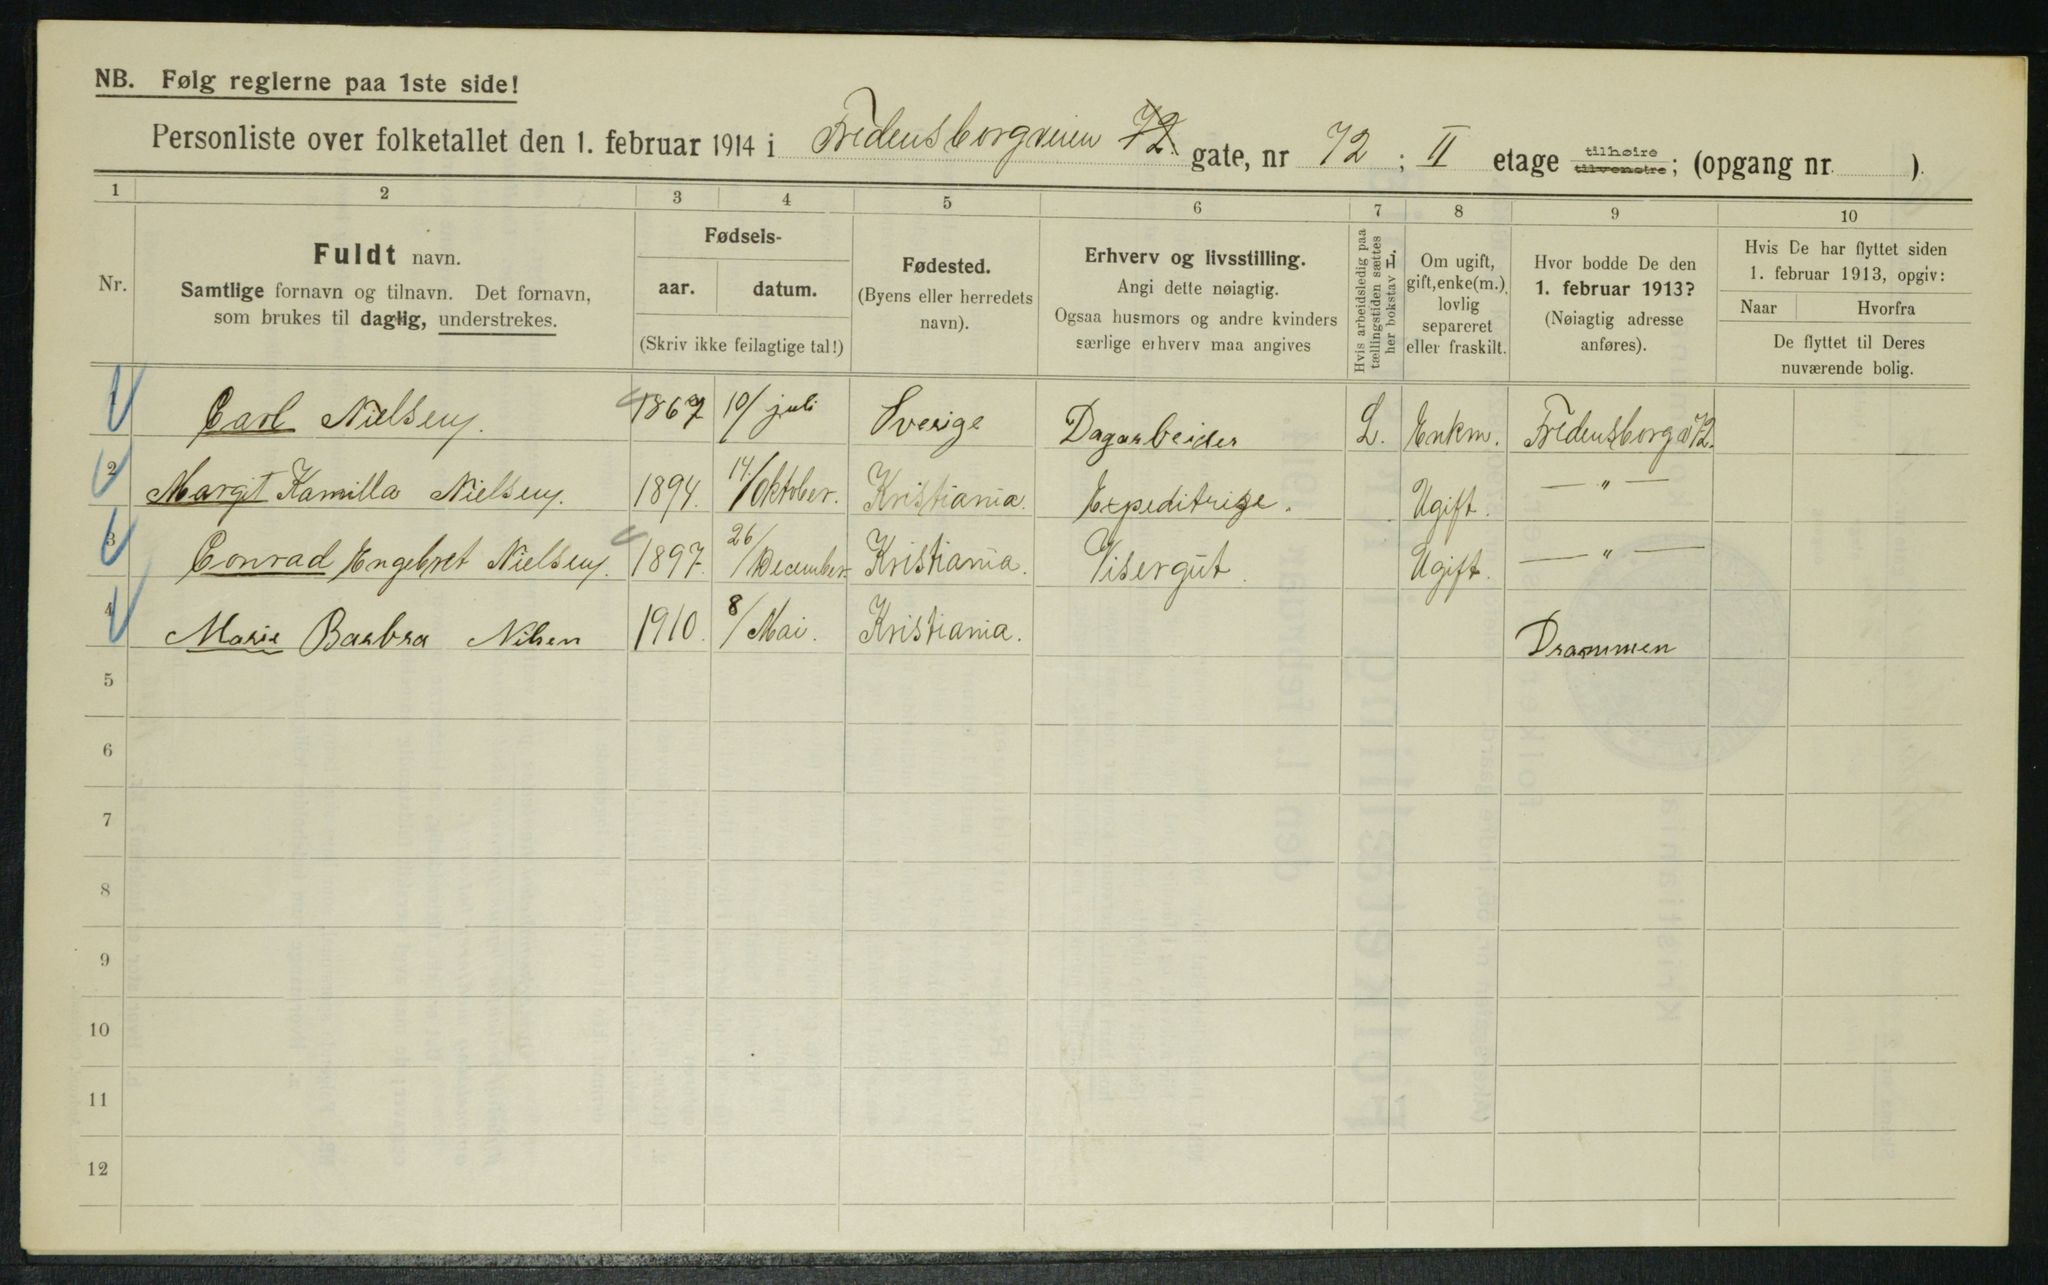 NB. Følg reglerne paa 1ste side!
Personliste over folketallet den 1. februar 1914 i Fredensborgveien 72 gate, nr 72; II etage tilhøire tilvenstre; (opgang nr. ).
1 2 3 4 5 6 7 8 9 10
Nr.
Fuldt navn.
Samtlige fornavn og tilnavn. Det fornavn,
som brukes til daglig, understrekes.
Fødsels-
aar. datum.
(Skriv ikke feilagtige tal!)
Fødested.
(Byens eller herredets
navn).
Erhverv og livsstilling.
Angi dette nøiagtig.
Ogsaa husmors og andre kvinders
særlige erhverv maa angives
Hvis arbeidsledig paa
tællingstiden sættes
her bokstav L.
Om ugift,
gift, enke(m.),
lovlig
separeret
eller fraskilt.
Hvor bodde De den
1. februar 1913?
(Nøiagtig adresse
anføres).
Hvis De har flyttet siden
1. februar 1913, opgiv:
Naar Hvorfra
De flyttet til Deres
nuværende bolig.
Carl Nielsen. 1867 10/ juli Sverige Dagarbeider L. Enkm. Fredensborgv 72.
2 Margit Kamilla Nielsen. 1894. 14/ Oktober. Kristiania. Expeditrise. Ugift. — " —
3 Conrad Engebret Nielsen. 1897. 26/ December. Kristiania. Visergut. Ugift. — " —
4 Marie Barbra Nilsen 1910. 8/ Mai. Kristiania. Drammen
5
6
7
8
9
10
11
12